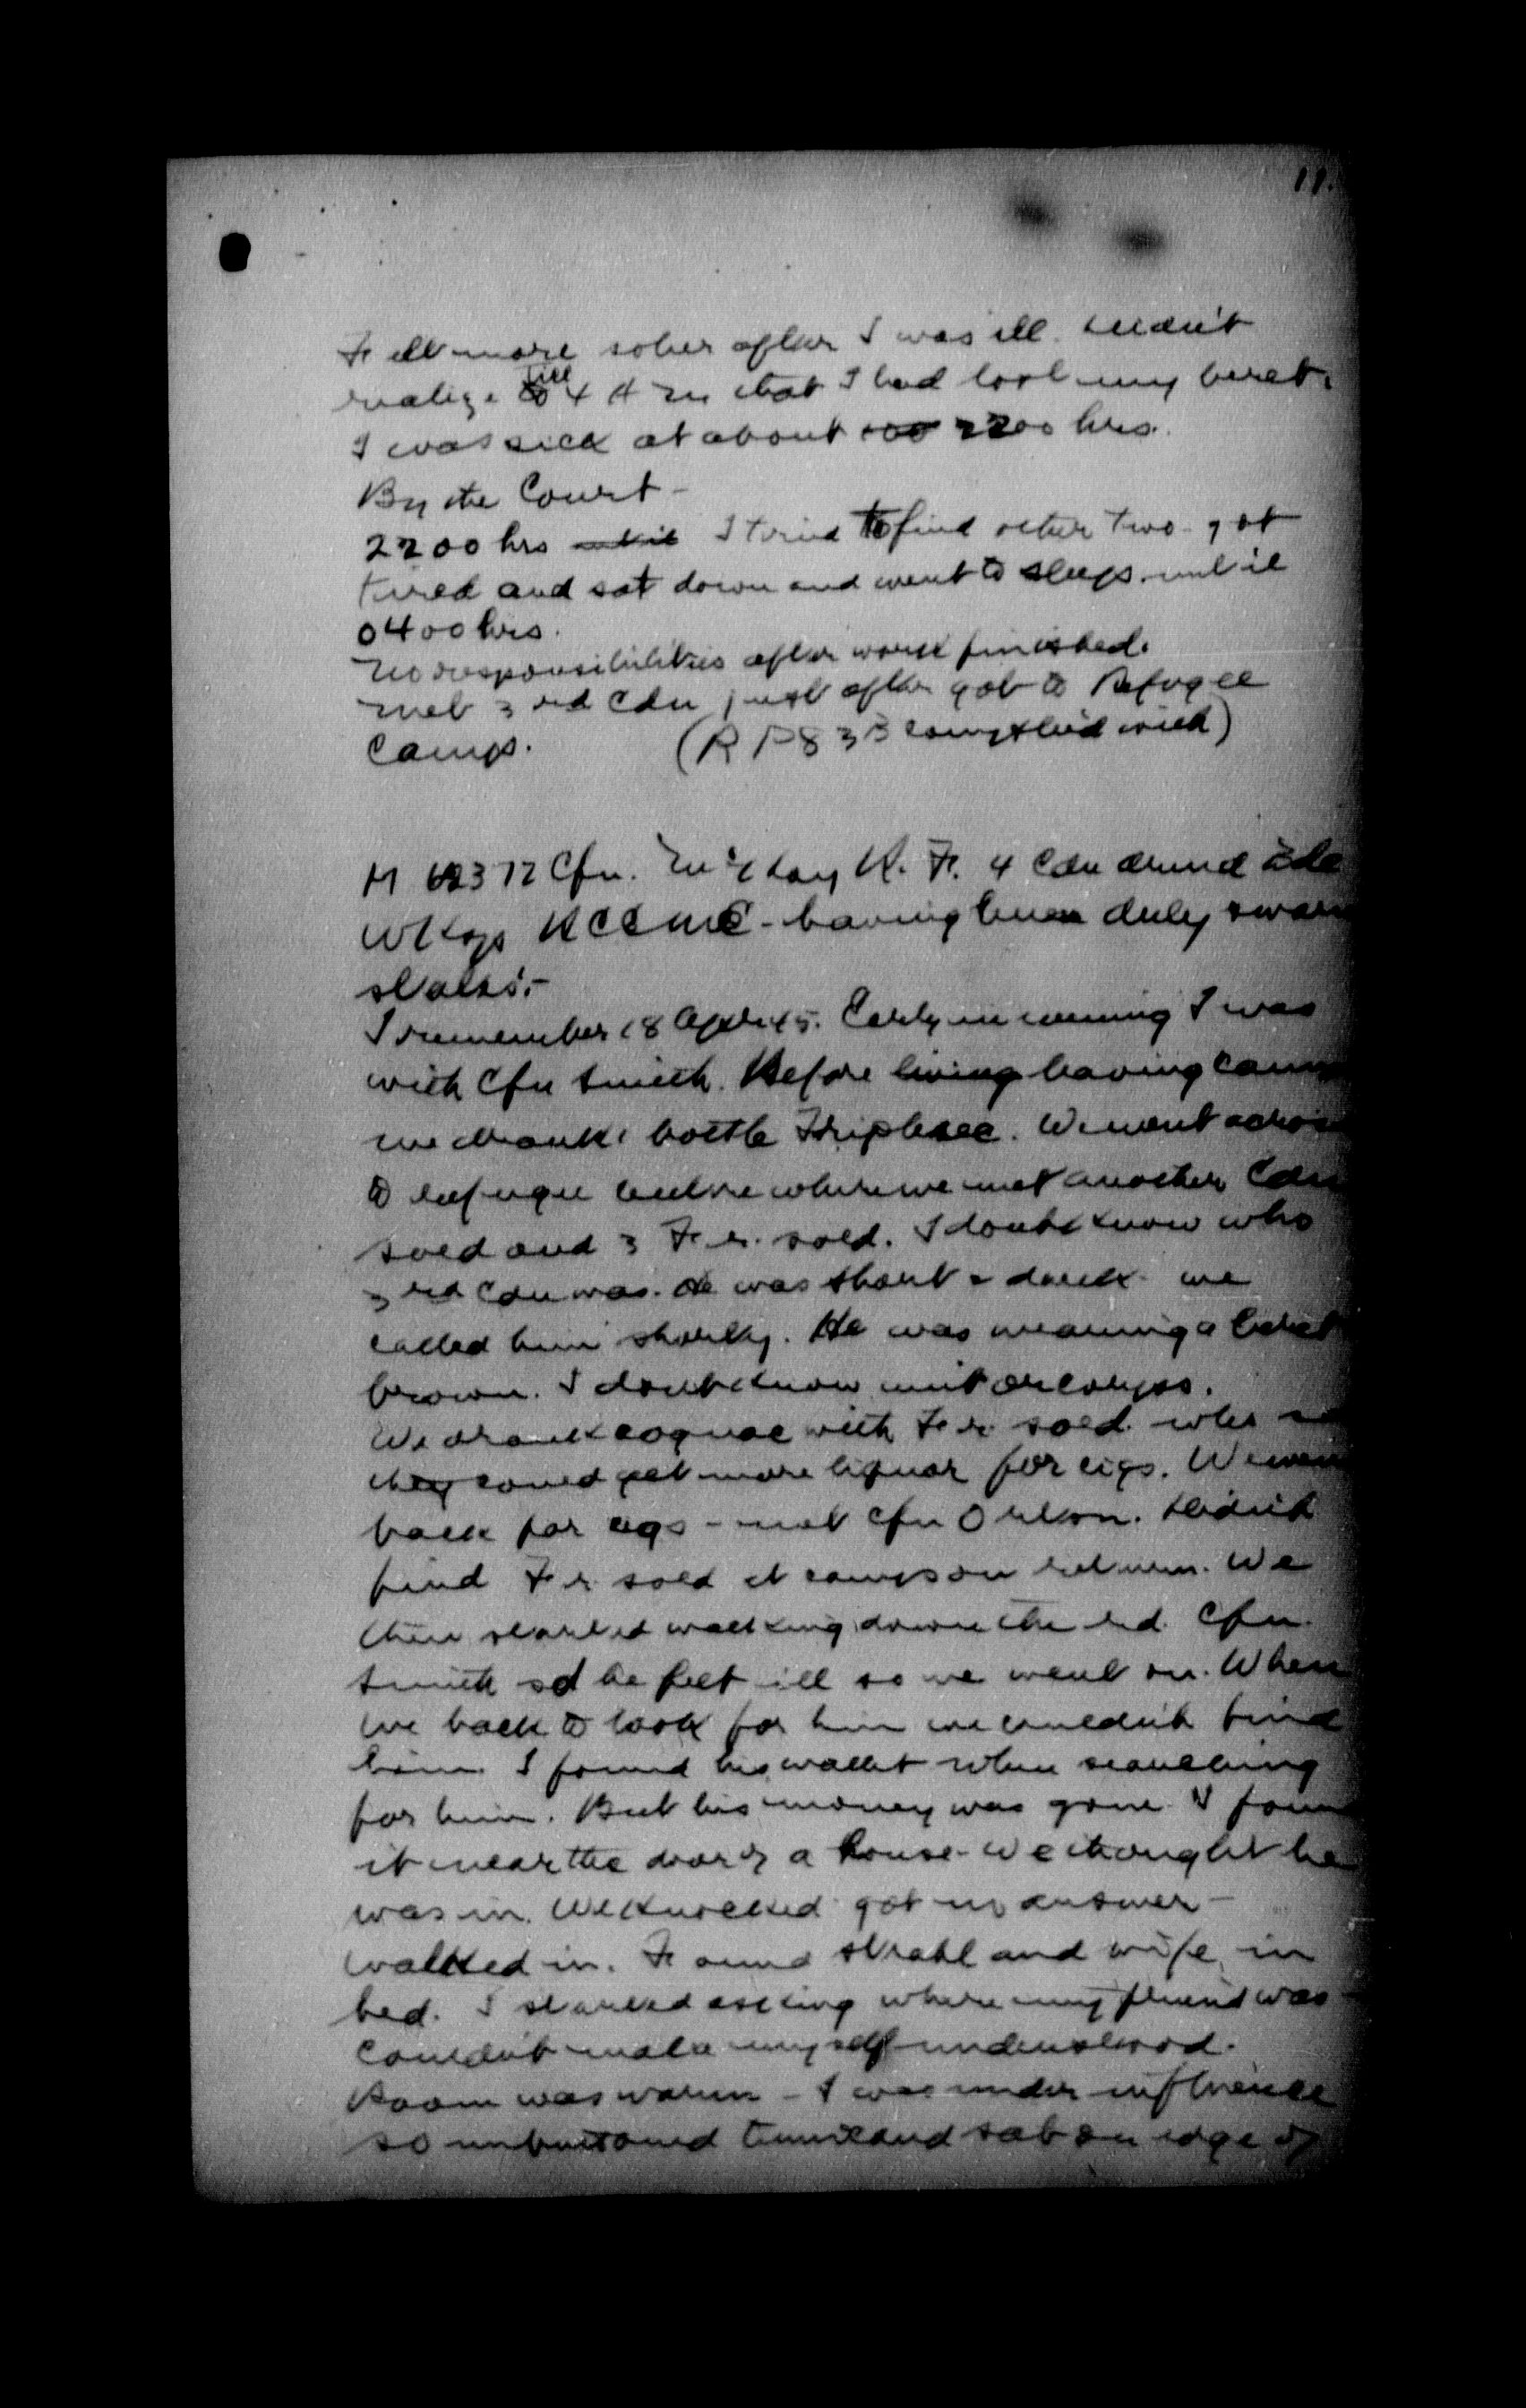 11.
Felt more sober after I was ill. Didn't
realize till 4 A M that I had lost my beret.
I was sick at about 2200 hrs.
By the Court -
2200 hrs I tried to find other two - got
tired and sat down and went to sleep until
0400 hrs.
No responsibilities after work finished.
Met 3rd Cdn just after got to Refugee
Camp. (R P 83 B complied with)
M Cfn. 4 Cdn Armd Bde
Wksp RCEME - having been duly sworn
states:-
I remember 18 Apr 45. Early in evening I was
with Cfn Smith. Before living having camp
we drank 1 bottle Triplesec. We went across
to refugee centre where we met another Cdn
sold and 3 Fr. sold. I don't know who
3rd Cdn was. He was short & dark - we
called him shorty. He was wearing a beret
brown. I don't know unit or corps.
We drank cognac with Fr. sold. who
they could get more liquor for cigs. We went
back for cigs - met Cfn. Didn't
find Fr. sold at camp on return. We
then started walking down the rd. Cfn.
Smith sd he felt ill so we went on. When
we back to look for him we couldn't find
him. I found his wallet when searching
for him. But his money was gone. I found
it near the door of a house - we thought he
was in. We knocked got no answer -
walked in. Found Strahl and wife in
bed. I started asking where my friend was -
couldn't make myself understood.
Room was warm - I was under influence
so unbuttoned tunic and sat on edge of